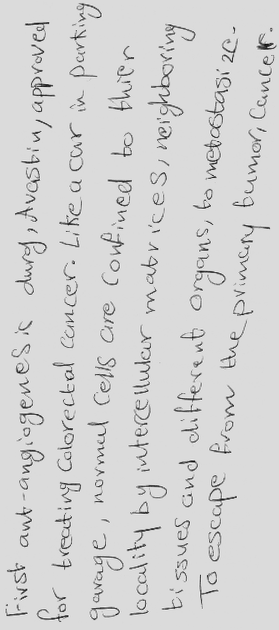 First ant-angiogenesis durg, Avastin, approved
for treating colorectal cancer. Like a car in parking
garage, normal cells are confined to thier
locality by intercellular matrices, neighboring
tissues and different organs, to metastasize.
To escape from the primary tumor, cancer.